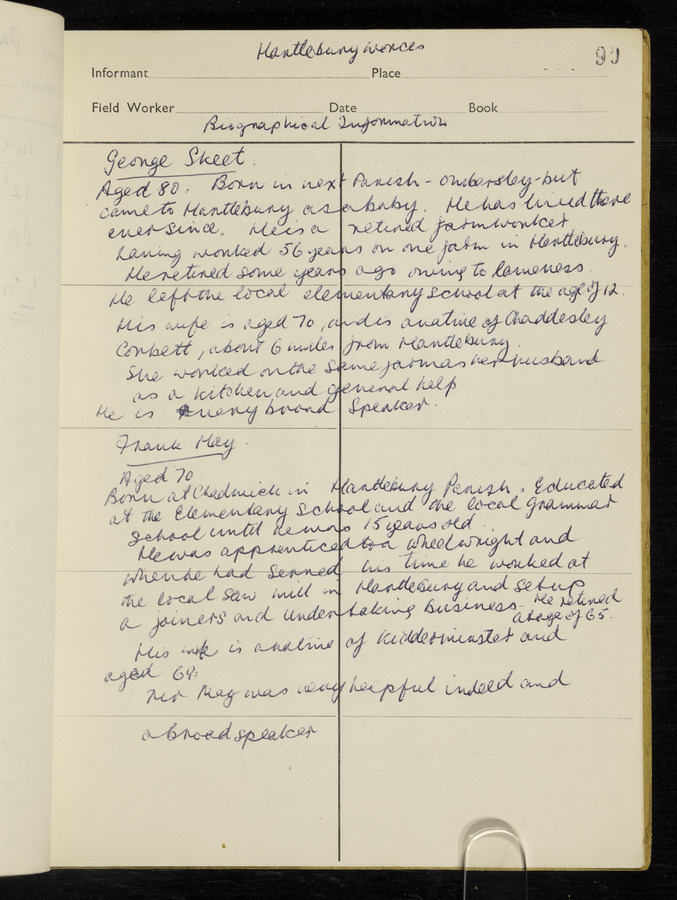 Hartlebury Worcs
90
Informant Place
Field Worker Date Book
Biographical Information
George Skeet.
Aged 80. Born in next Parish - Ombersley - but
came to Hartlebury as a baby. He has lived there
ever since. He is a retired farmworker
having worked 56 years on one farm in Hartlebury.
He retired some years ago owing to lameness.
He left the local elementary school at the age of 12.
His wife is aged 70, and is a native of Chaddesley
Corbett, about 6 miles from Hartlebury.
She worked on the same farm as her husband
as a kitchen and general help.
He is a very broad speaker.
Frank May.
Aged 70
Born at Chadwick in Hartlebury Parish. Educated
at the Elementary School and the local Grammar
School until he was 15 years old.
He was apprenticed to a wheelwright and
when he had served his time he worked at
the local saw mill in Hartlebury and set up
a joiners and undertaking business. He retired
at age of 65.
His wife is a native of Kidderminster and
aged 69.
Mr May was very helpful indeed and
a broad speaker